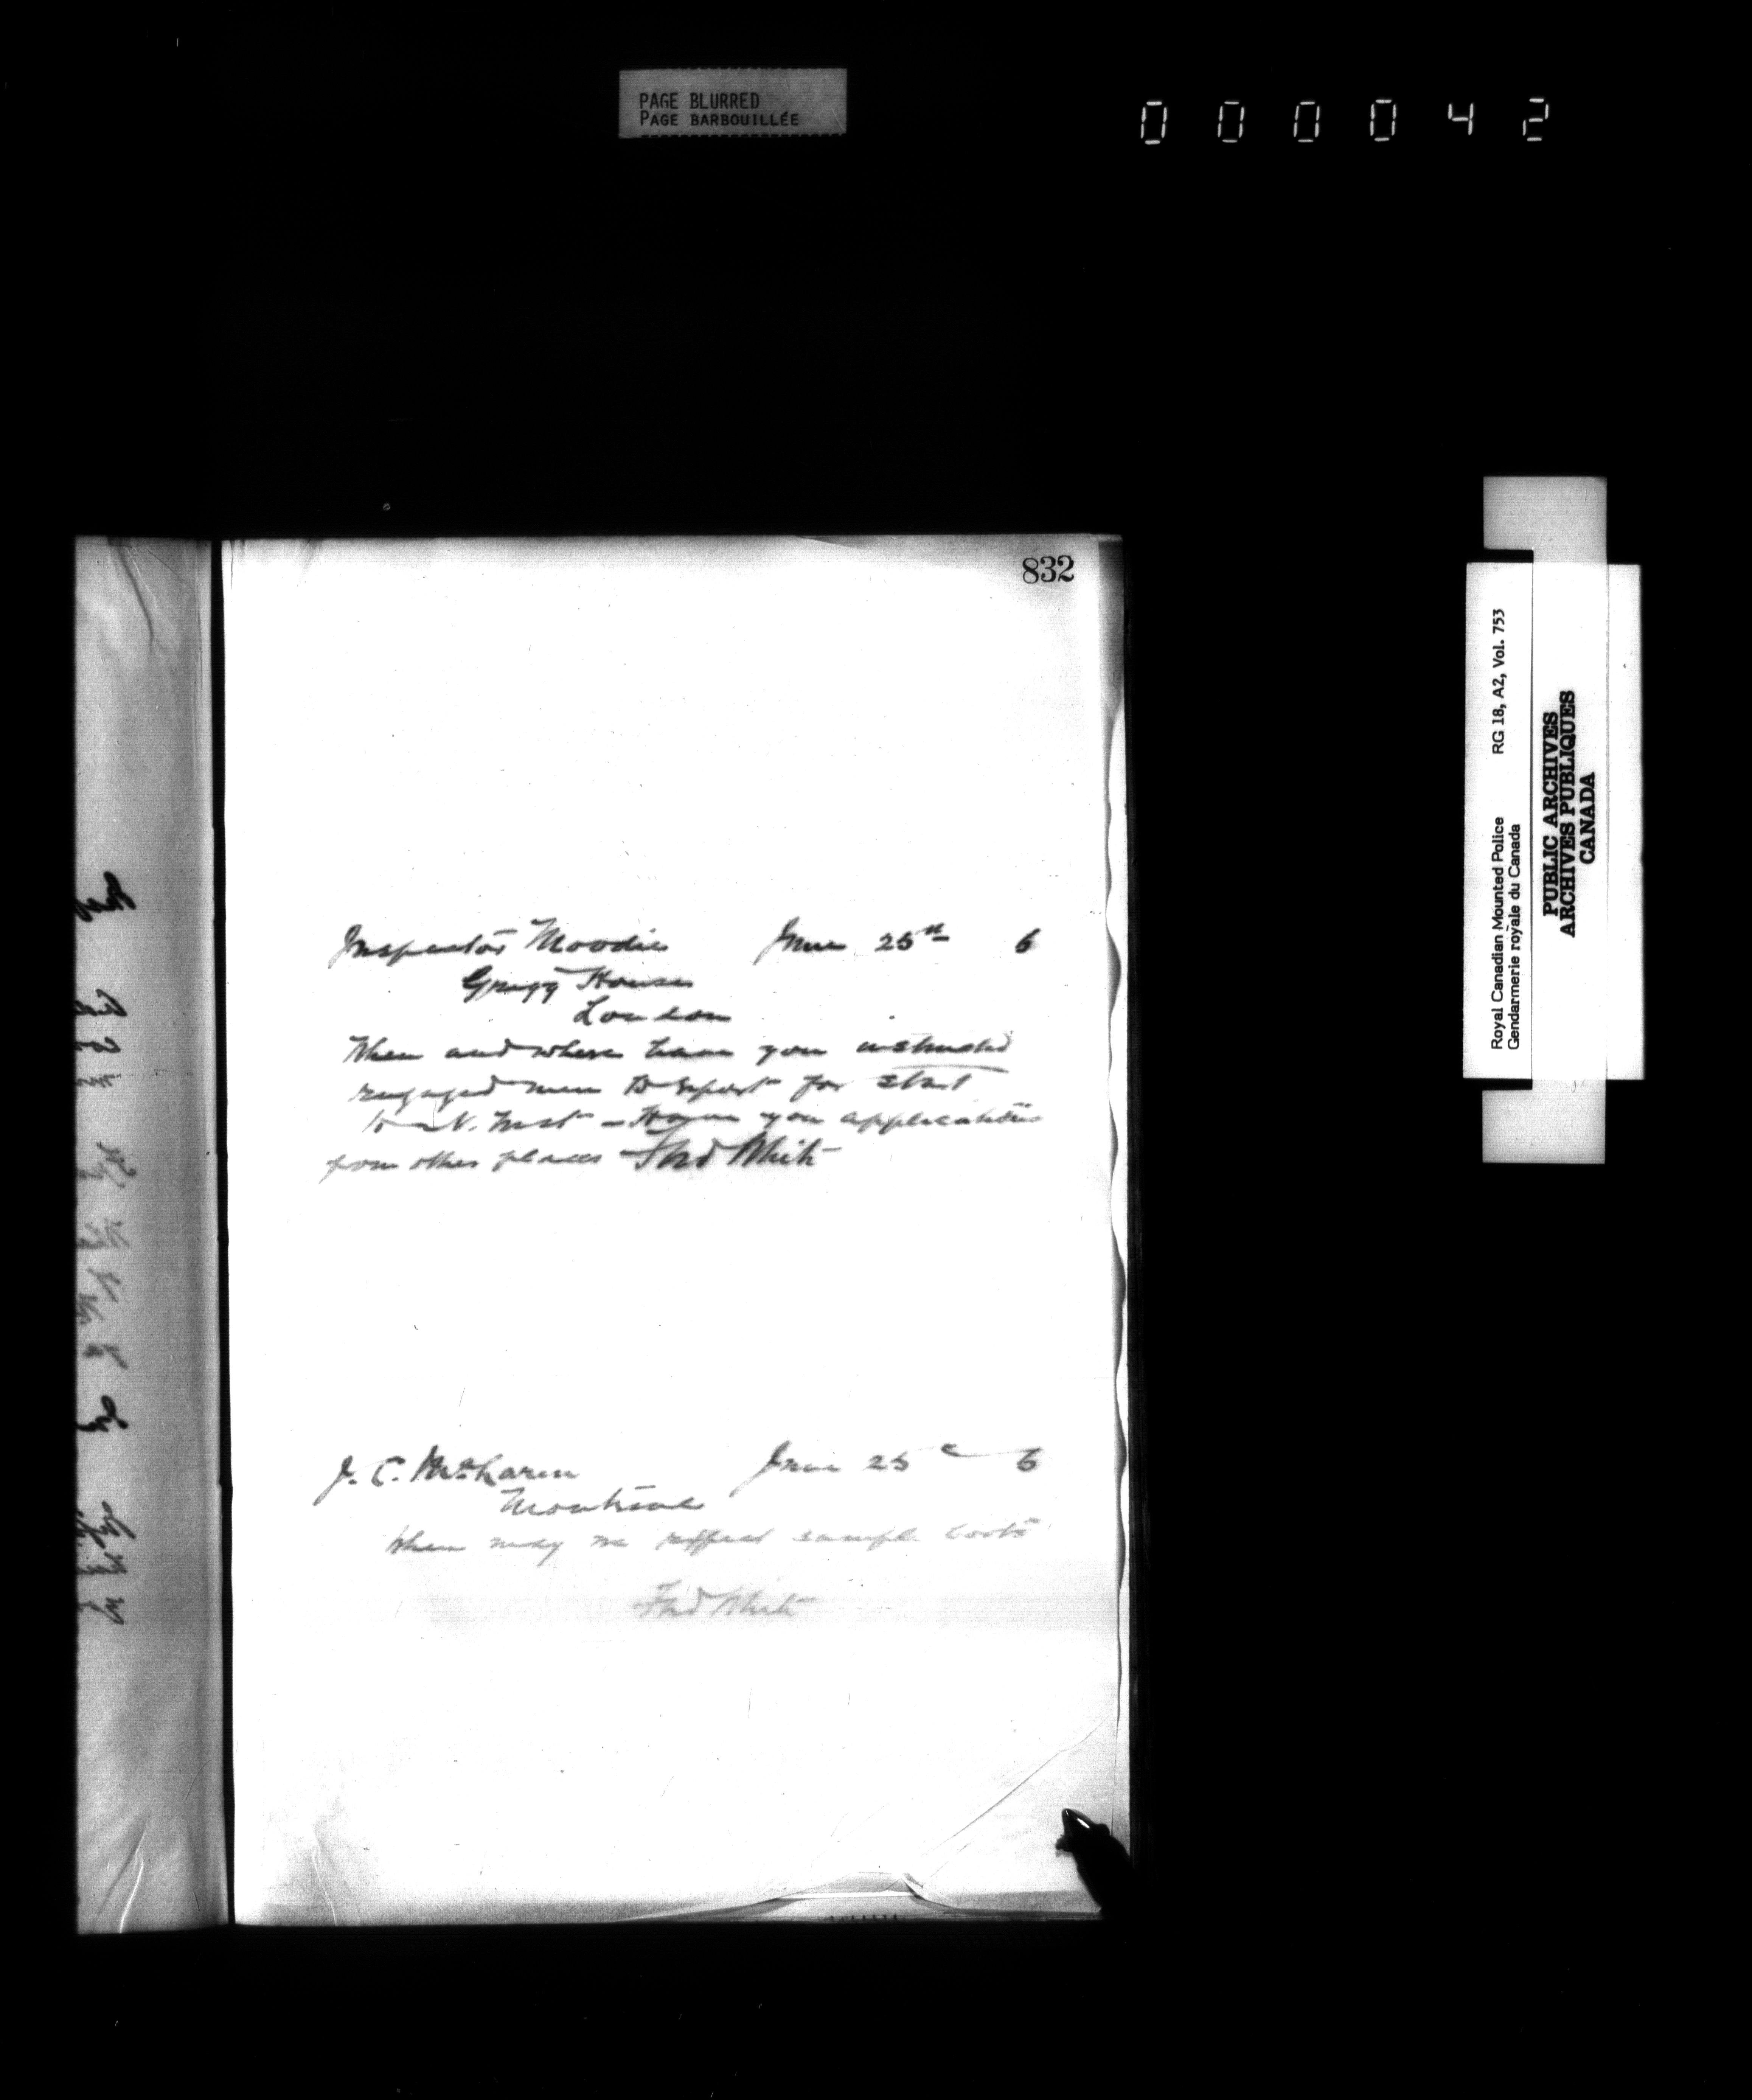 PAGE BLURRED
PAGE BARBOUILLÉE
000042
832
Inspector Moodie June 25th 6
Grigg House
London
When and where have you instructed
engaged men to report for start
to N. West - Have you applications
from other places Fred White
J. C. McLaren June 25 6
Montreal
When may we expect sample boots
Fred White
Royal Canadian Mounted Police RG 18, A2, Vol. 753
Gendarmerie royale du Canada
PUBLIC ARCHIVES
ARCHIVES PUBLIQUES
CANADA